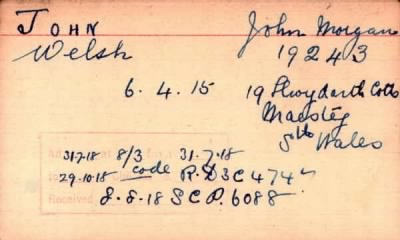 JOHN John Morgan
Welsh 19243
6.4.15 19 Llwydarth Cotts
Maesteg
Sth Wales
31.7.18 8/3 31.7.18
29.10.18 code R.D 3C 474
8.8.18 S C P. 6088
Received